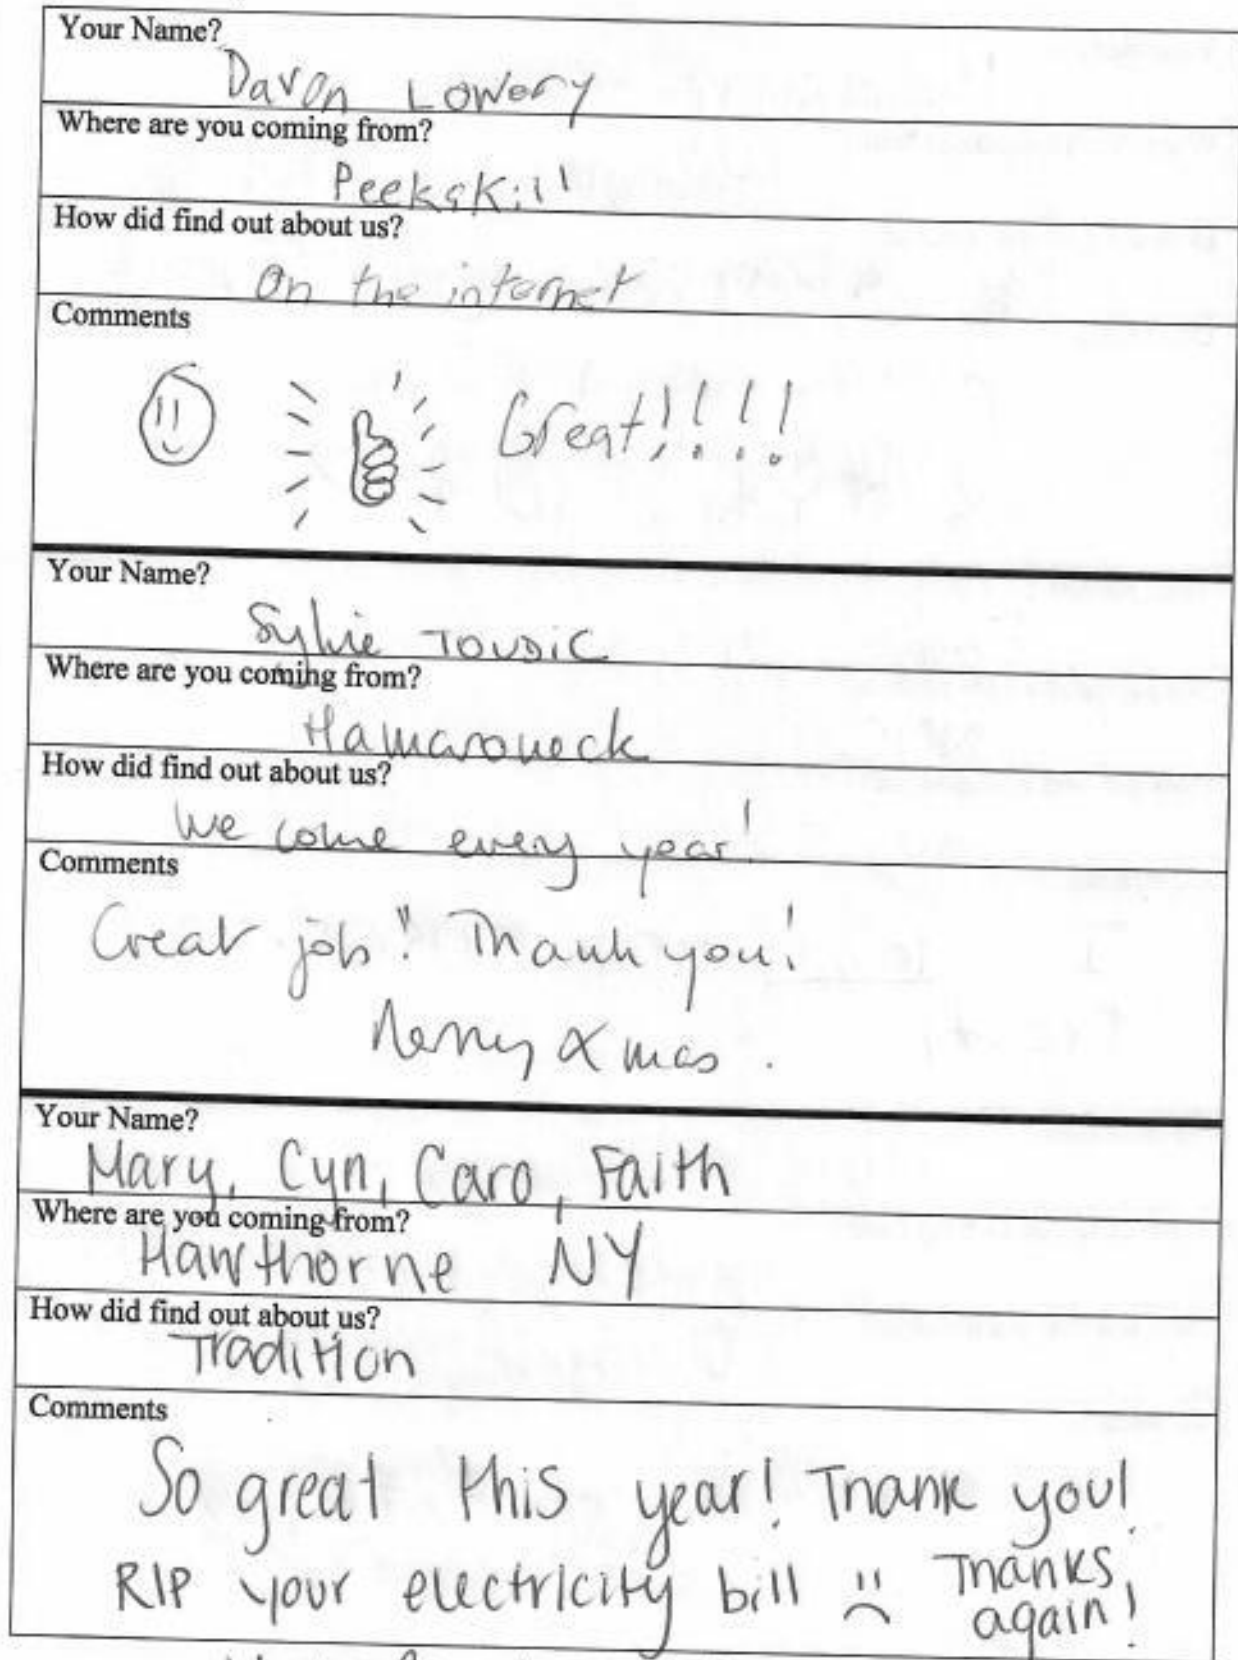 Your Name?
Davon Lowery
Where are you coming from?
Peekskill
How did find out about us?
On the internet
Comments
Great!!!!
Your Name?
Sylvie
Where are you coming from?
Mamaroneck
How did find out about us?
We come every year!
Comments
Great job!! Thank you!
Merry Xmas.
Your Name?
Mary, Cyn, Caro, Faith
Where are you coming from?
Hawthorne NY
How did find out about us?
Tradition
Comments
So great this year! Thank you!
RIP your electricity bill :( Thanks
again!